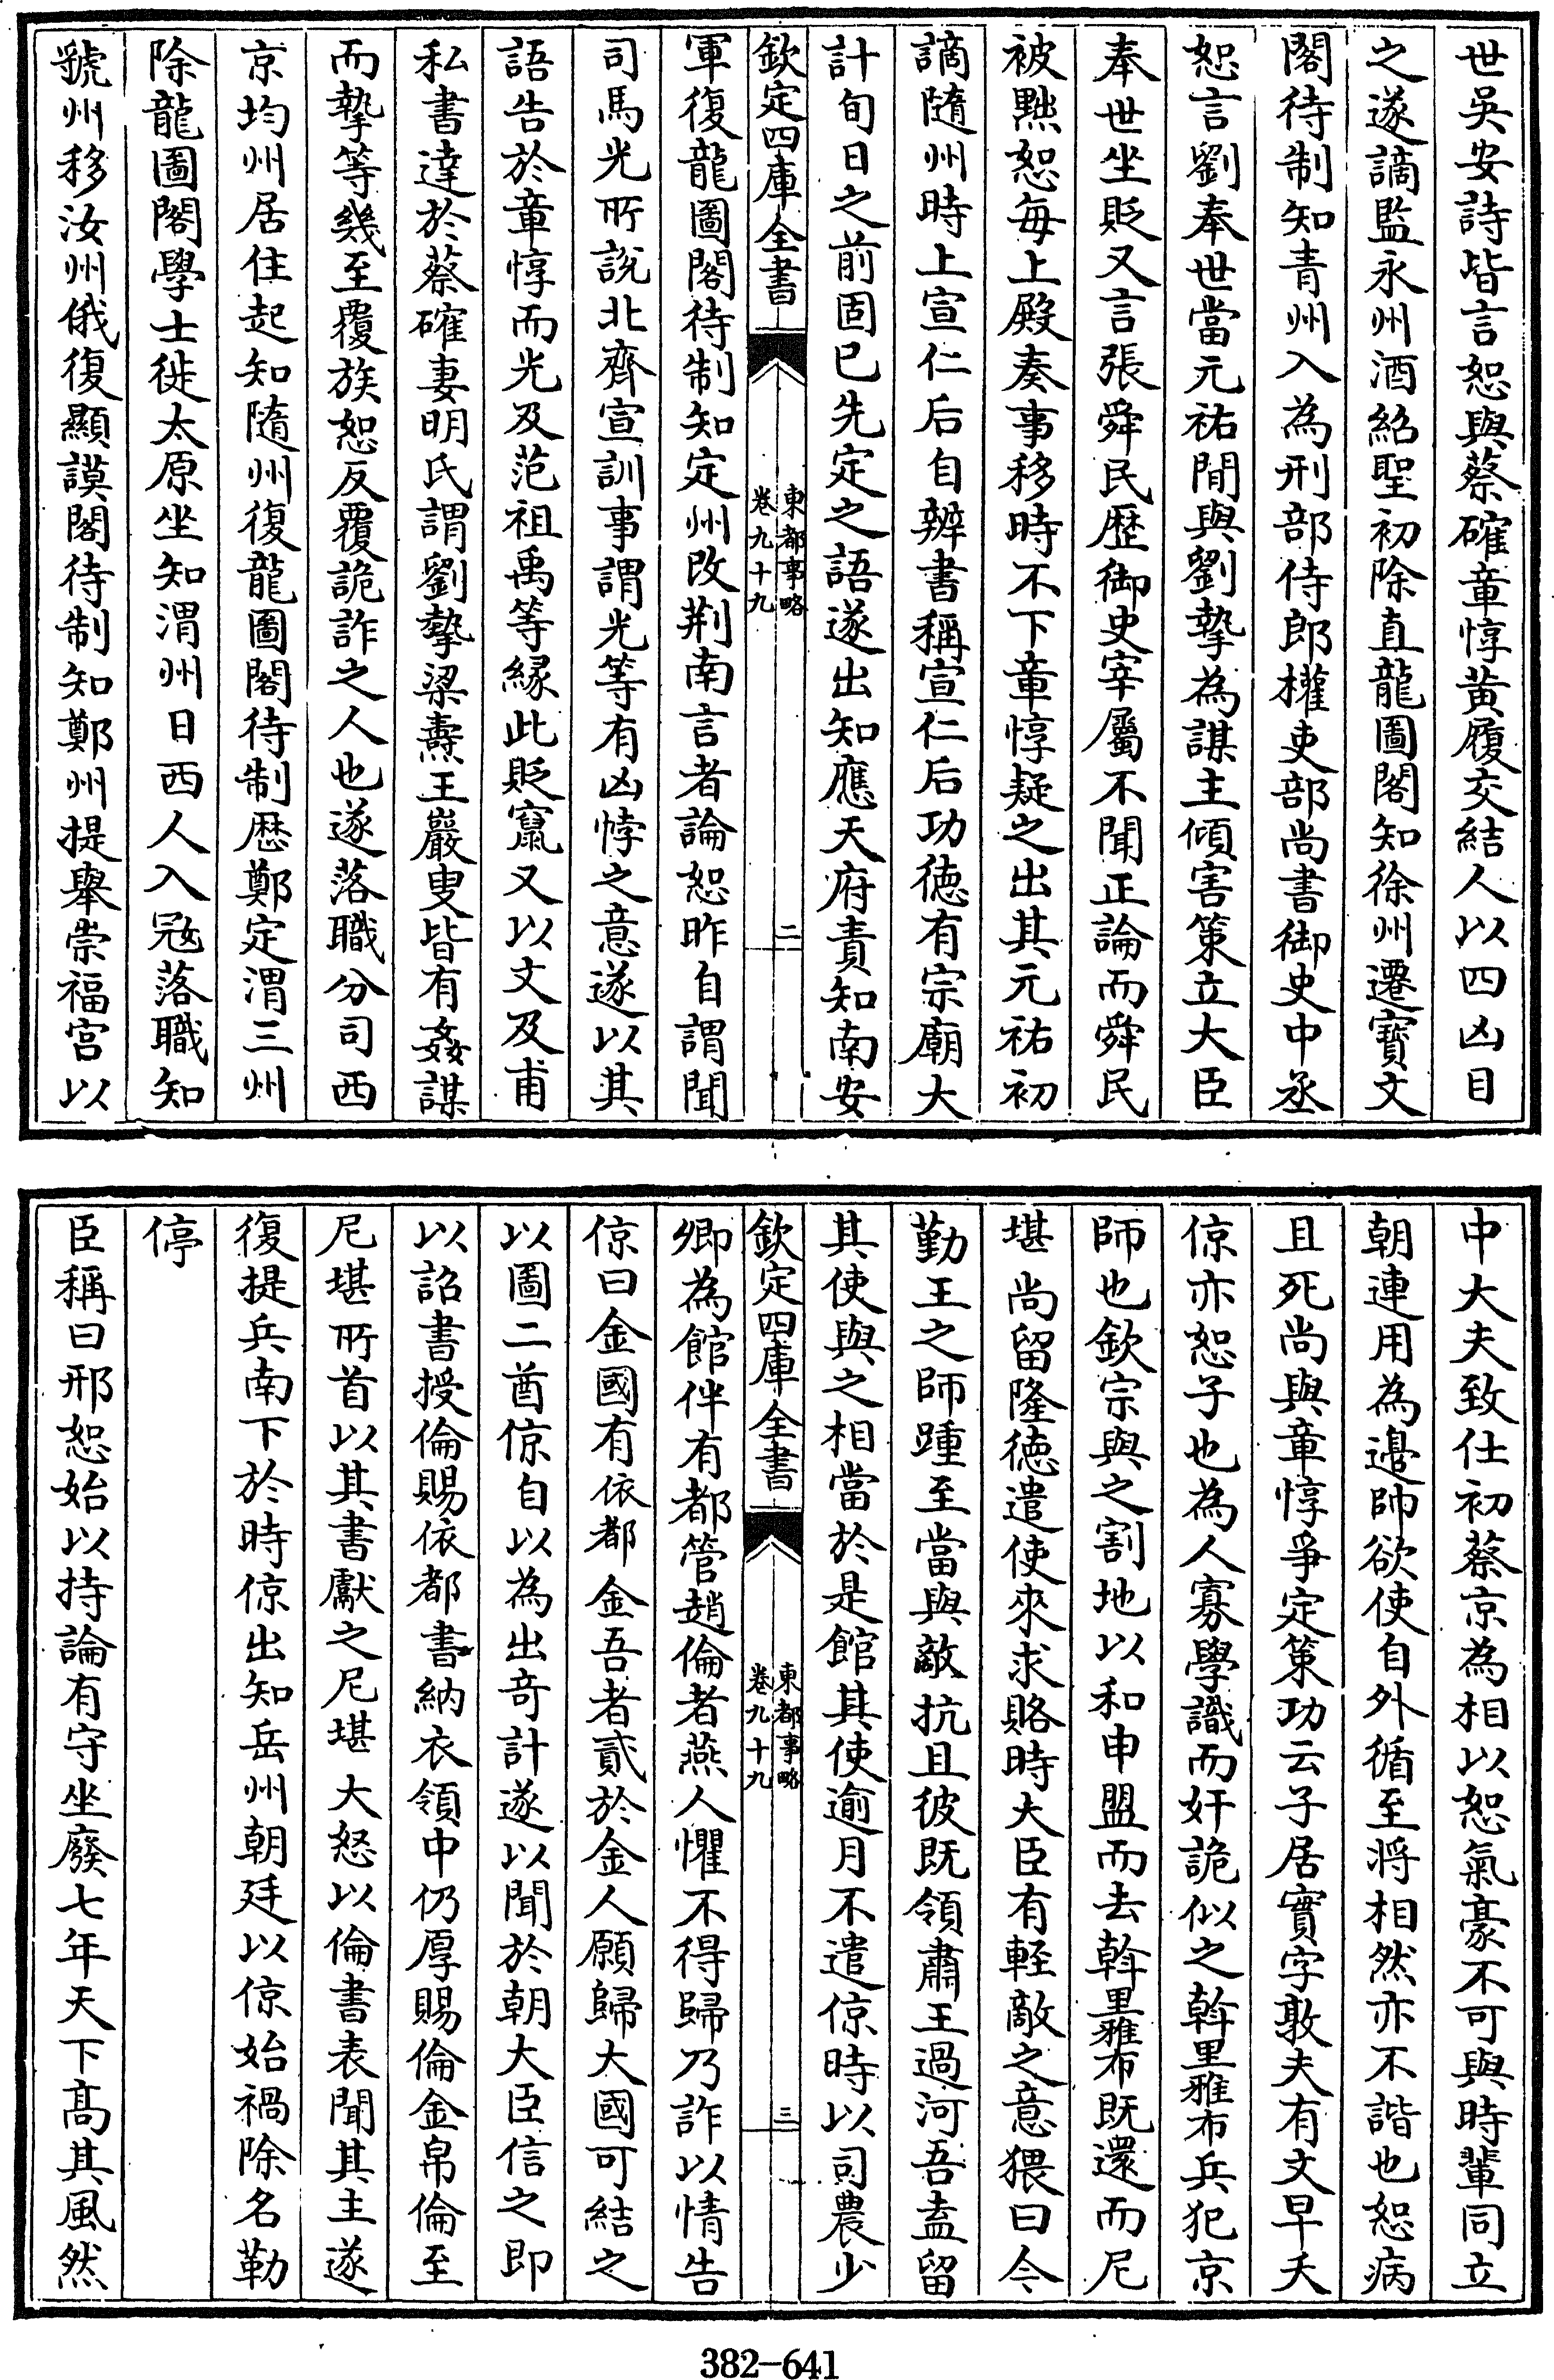 世吳安詩皆言恕與蔡確章惇黄履交結人以四凶目
之遂謫監永州酒紹聖初除直龍圖閣知徐州遷寶文
閣待制知青州入為刑部侍郎權吏部尚書御史中丞
恕言劉奉世當元祐間與劉摯為謀主傾害策立大臣
奉世坐貶又言張舜民歴御史宰屬不聞正論而舜民
被黜恕每上殿奏事移時不下章惇疑之出其元祐初
謫隨州時上宣仁后自辨書稱宣仁后功德有宗廟大
計旬日之前固已先定之語遂出知應天府責知南安
欽定四庫全書
東都事略
卷九十九
二
軍復龍圖閣待制知定州改荆南言者論恕昨自謂聞
司馬光所說北齊宣訓事謂光等有凶悖之意遂以其
語告於章惇而光及范祖禹等縁此貶竄又以文及甫
私書達於蔡確妻明氏謂劉摯梁燾王巖叟皆有姦謀
而摯等幾至覆族恕反覆詭詐之人也遂落職分司西
京均州居住起知隨州復龍圖閣待制歴鄭定渭三州
除龍圖閣學士徙太原坐知渭州日西人入冦落職知
虢州移汝州俄復顯謨閣待制知鄭州提舉崇福宫以
中大夫致仕初蔡京為相以恕氣豪不可與時輩同立
朝連用為邉帥欲使自外循至將相然亦不諧也恕病
且死尚與章惇爭定策功云子居實字敦夫有文早夭
倞亦恕子也為人寡學識而奸詭似之斡里雅布兵犯京
師也欽宗與之割地以和申盟而去斡里雅布既還而尼
堪尚留隆德遣使來求賂時大臣有輕敵之意猥曰今
勤王之師踵至當與敵抗且彼既領肅王過河吾盍留
其使與之相當於是館其使逾月不遣倞時以司農少
欽定四庫全書
東都事略
卷九十九
三
卿為館伴有都管趙倫者燕人懼不得歸乃詐以情告
倞曰金國有依都金吾者貳於金人願歸大國可結之
以圖二酋倞自以為出奇計遂以聞於朝大臣信之即
以詔書授倫賜依都書納衣領中仍厚賜倫金帛倫至
尼堪所首以其書獻之尼堪大怒以倫書表聞其主遂
復提兵南下於時倞出知岳州朝廷以倞始禍除名勒
停
臣稱曰邢恕始以持論有守坐廢七年天下髙其風然
382-641